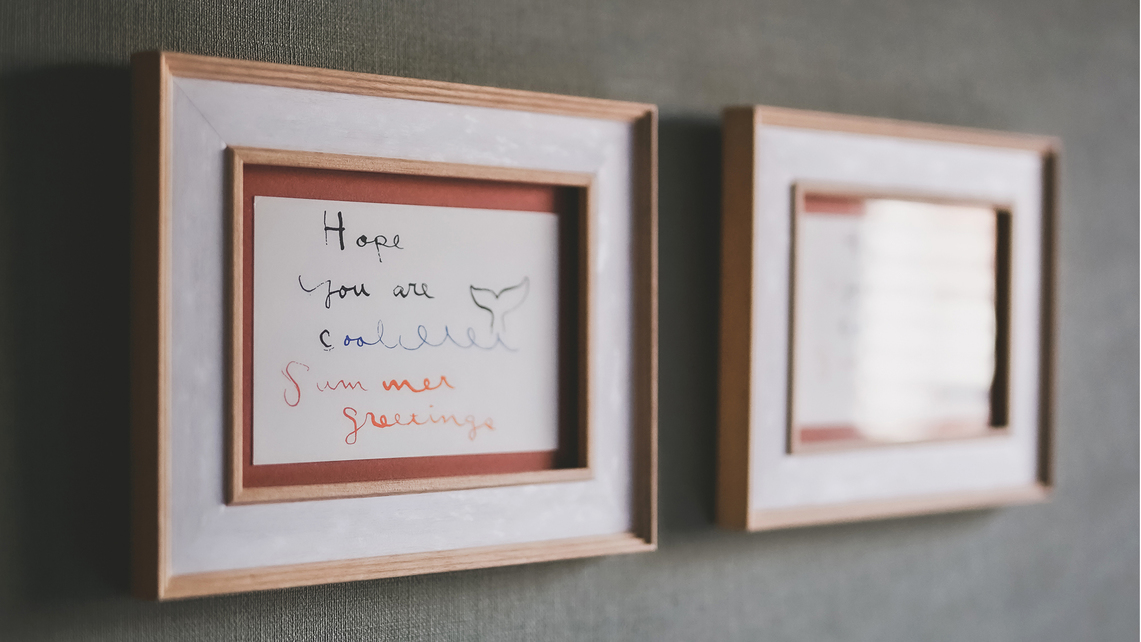 Hope
you are
cool
Summer
greetings